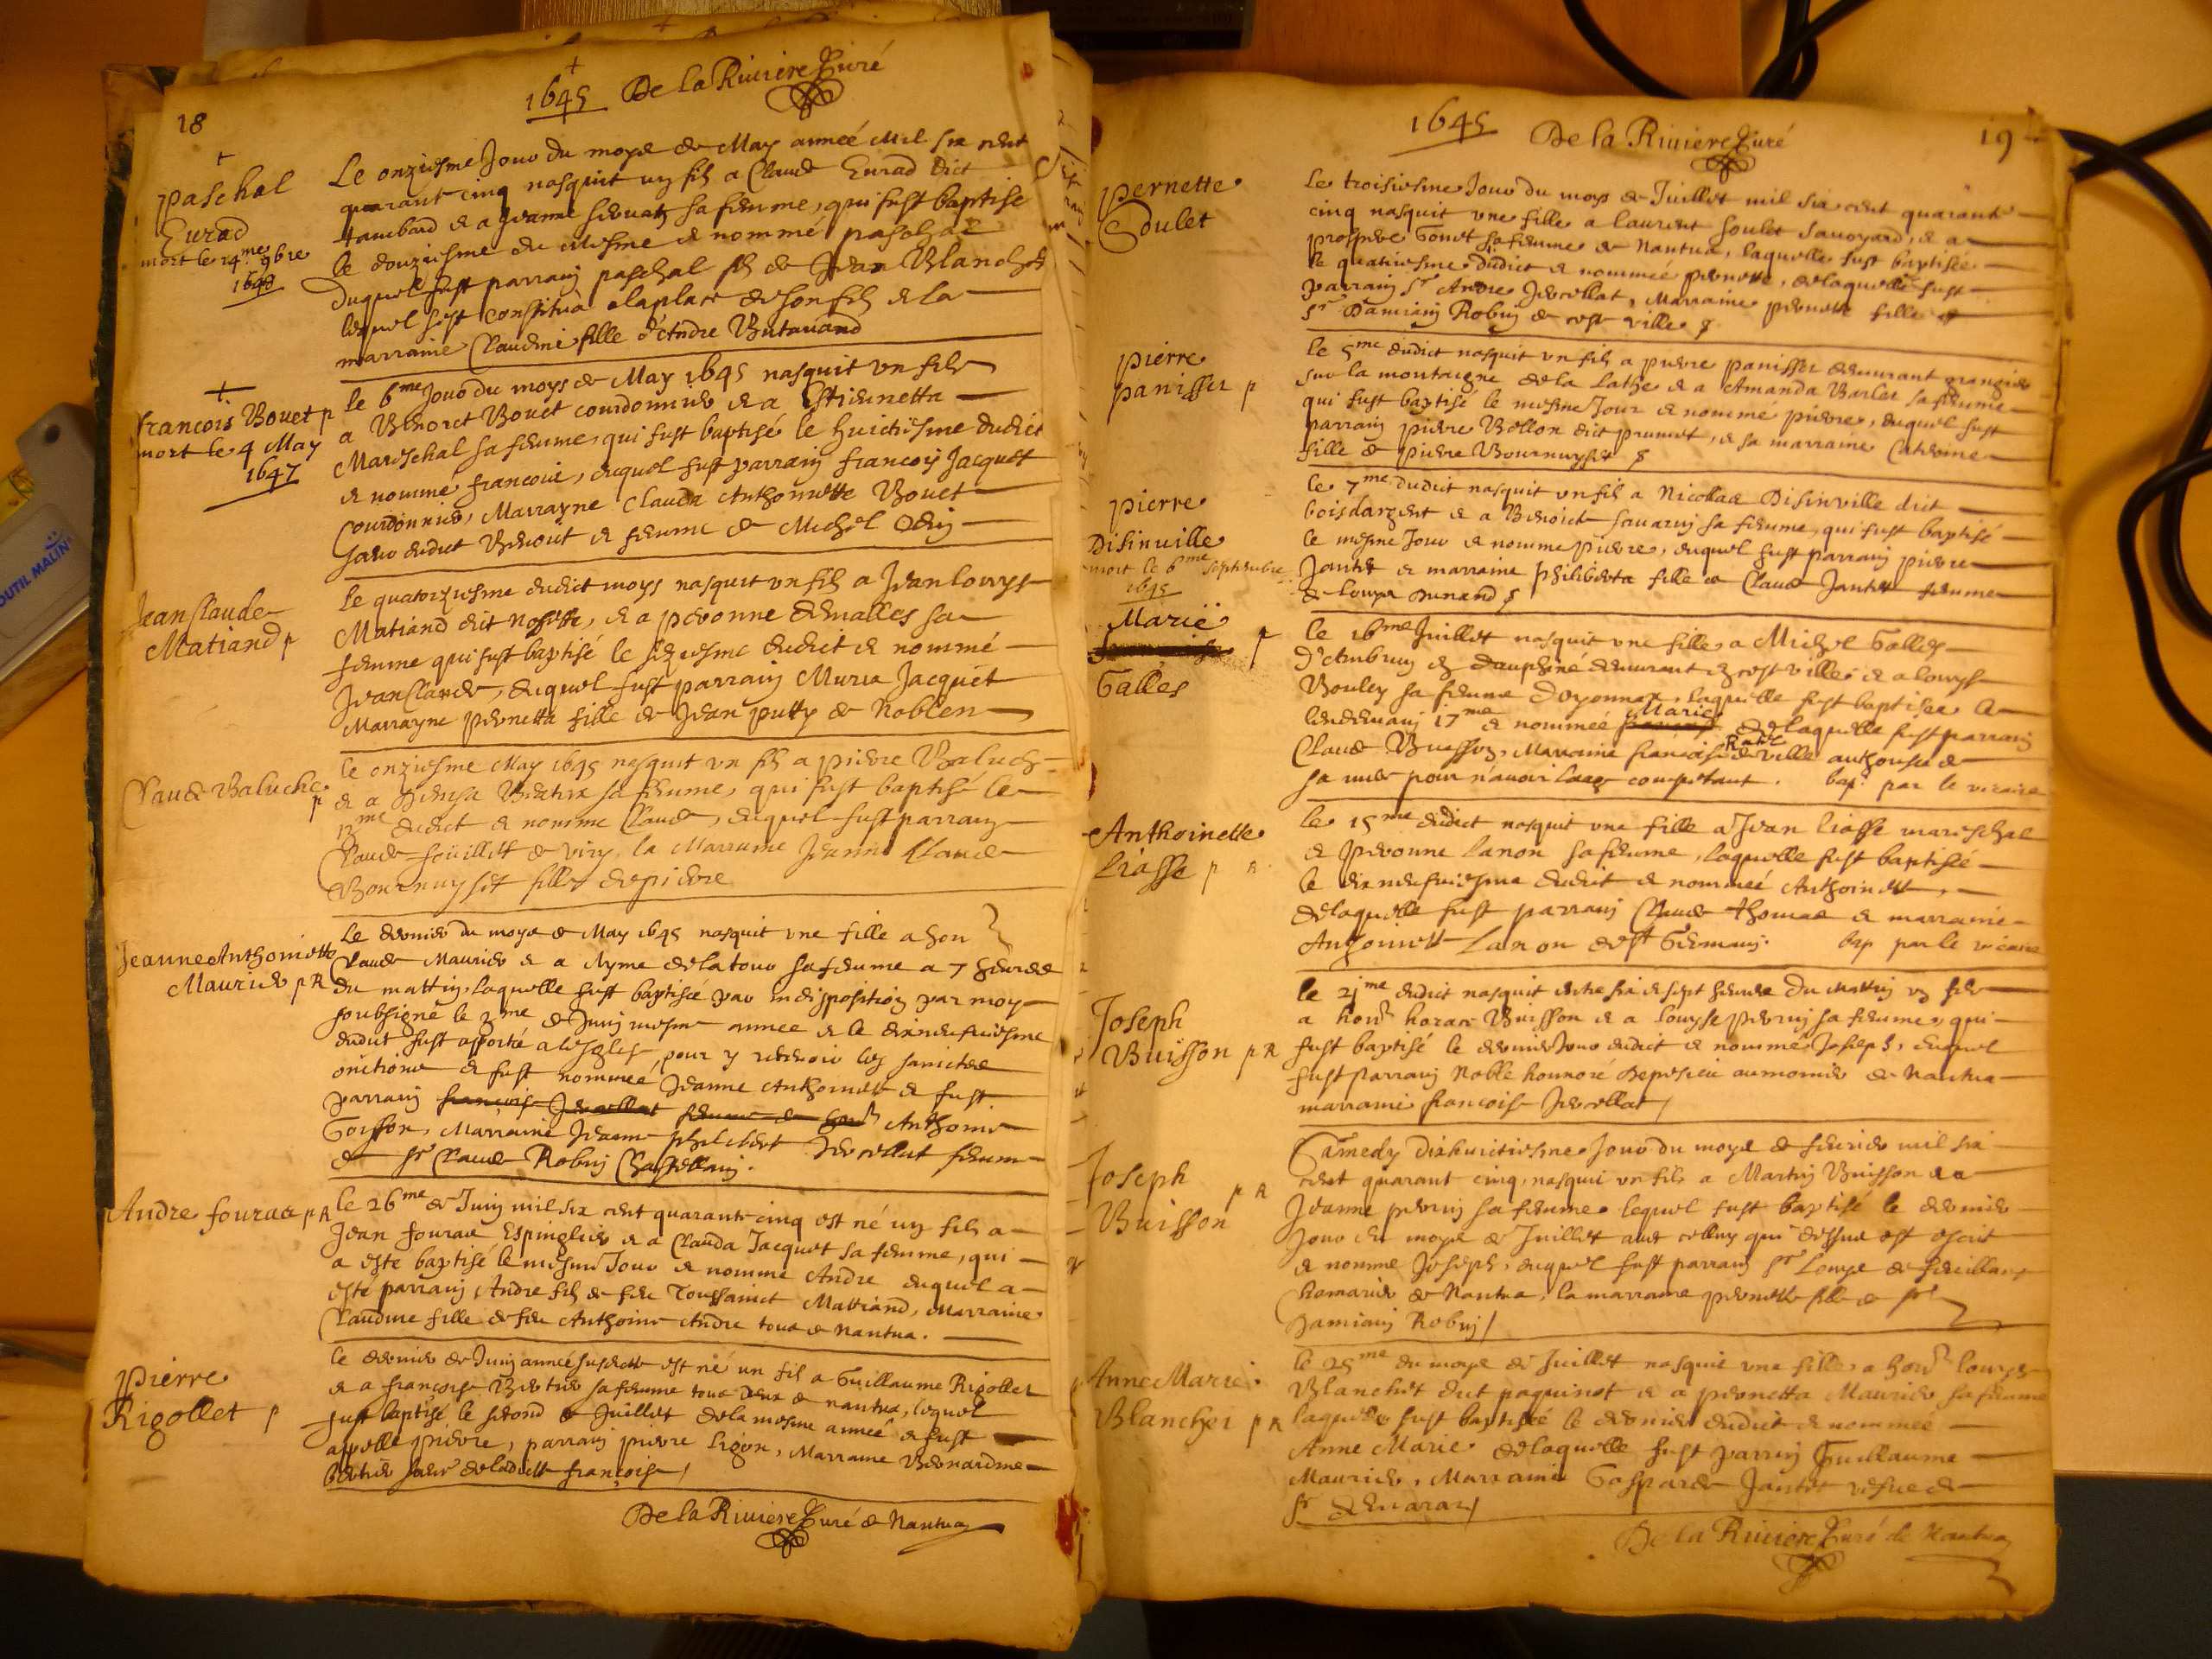 18
1645 De la Riviere Curé
paschal
Eurad
mort le 14me 9bre
Le onziesme Jour du moys de May anneé Mil six cent
quarant cinq nasquit un fils a Claude Eurad dict
sa femme, qui fust baptise
le douziesme du mesme et nommé paschal
duquel fust parrain paschal fils de Jean Blanchet
lequel s'est constitué a la place de son fils et la
marraine Claudine fille d'Andre Butavand
francois Bouet p
mort le 4 May
1647
le 6me Jour du moys de May 1645 nasquit un fils
a Benoict Bouet courdonnier et a Estiennetta
Mareschal sa femme, qui fust baptisé le huictiesme dudict
et nommé francois, duquel fust parrain francois Jacquet
Courdonnier, Marrayne Clauda Anthoinette Bouet
sœur dudict Benoict et femme de Michel Odin
Jean Claude
Matiand p
le quatorziesme dudict moys nasquit un fils a Jean louys
Matiand dit et a pevonne sa
femme qui fust baptisé le seziesme dudict et nommé
Jean Claude, duquel fust parrain Jacquet
Marrayne pernetta fille de Jean de Noblen
Claude Baluche
p
le onziesme May 1645 nasquit un fils a pierre Baluch
et a sa femme, qui fust baptisé le
dudict et nommé Claude, duquel fust parrain
Claude de Viry, la Marraine Jeanne Claude
fille de pierre
Jeanne Anthoinette
Maurier p R
le dernier du moys de May 1645 nasquit une fille a hon
Claude Maurier et a Ayme de la tour sa femme a 7 heures
du mattin, laquelle fust baptisée par indisposition par moy
soubsigné le 2me de Juin mesme annee et le dixneufviesme
dudict fust apporté a l'esglise, pour y recevoir les sainctes
onctions et fust nommeé Jeanne Anthoinette et fust
parrain Anthoine
Goiffon, Marraine Jeanne philiberte Jevellat femme
de sr Claude Robin Chastellain.
Andre fourat p R
le 26me de Juin mil six cent quarante cinq est né un fils a
Jean fourat Espinglier et a Clauda Jacquet sa femme, qui
a este baptisé le mesme Jour et nommé Andre duquel a
esté parrain Andre fils de feu Toussainct Mattiand, Marraine
Claudine fille de feu Anthoine Andre tous de Nantua.
Pierre
Rigollet p
le dernier de Juin année susdicte est né un fil a Guillaume Rigollet
et a françoise Bertier sa femme tous deux de nantua, lequel
fust baptisé le second de Juillet de la mesme anneé et fust
appellé pierre, parrain pierre ligon, Marraine Bernardine
bertier sœur de ladicte françoise
De la Riviere Curé de Nantua
1645 De la Riviere Curé
19
pernette
Goulet
le troisiesme Jour du moys de Juillet mil six cent quarante
cinq nasquit une fille a laurent Goulet savoyard, et a
prospere Gonet sa femme de Nantua, laquelle fust baptisée
le quatriesme dudict et nommée pernette, de laquelle fust
parrain sr Andre Jevellat, Marraine pernette fille de
sr Damiain Robin de cest ville
pierre
panisset p
le 5me dudict nasquit un fils a pierre panisset demeurant grangier
sur la montaigne de la lathe et a Amanda Barlet sa femme
qui fust baptisé le mesme Jour et nommé pierre, duquel fust
parrain pierre Bollon dict prunet, et sa marraine Caterine
fille de pierre
pierre
Disinville
mort le 6me septembre
1645
le 7me dudict nasquit un fils a Nicollas Disinville dict
boisdargent et a Benoicte savarin sa femme, qui fust baptisé
le mesme Jour et nomme pierre, duquel fust parrain pierre
Jantet et marraine philiberta fille de Claude Jantet femme
de louys Durand
Marie
Galles p
le 16me Juillet nasquit une fille a Michel Galles
d'Ambrun en dauphine demeurant en cest ville et a louyse
Bouley sa femme d'oyonnax, laquelle fust baptisee le
lendemain 17me et nommée Marie de laquelle fust parrain
Claude Buisson, Marraine francoise de Ratel ville authorisée de
sa mere pour n'avoir l'aage competant. bap. par le vicaire
Anthoinette
Liasse p R
le 15me dudict nasquit une fille a Jean liasse mareschal
et pevonne Lanon sa femme, laquelle fust baptisée
le dixneufviesme dudict et nommeé Anthoinette,
de laquelle fust parrain Claude thomas et marraine
Anthoinette Lanon de st Germain. bap par le vicaire
Joseph
Buisson p R
le 21me dudict nasquit entre six et sept heures du mattin un fils
a honr horace Buisson et a louyse perrin sa femme, qui
fust baptisé le dernier Jour dudict et nommé Joseph, duquel
fust parrain Noble honnoré aumonier de Nantua
marraine francoise Jevellat
Joseph
Buisson p R
Samedy dixhuictiesme Jour du moys de febvrier mil six
cent quarant cinq, nasquit un fils a Martin Buisson et a
Jeanne perrin sa femme lequel fust baptisé le dernier
Jour du moys de Juillet avec celluy qui dessus est escrit
et nommé Joseph, duquel fust parrain sr Louys de
de Nantua, la marraine pernette fille de sr
Damiain Robin
Anne Marie
Blanchet p R
le 25me du moys de Juillet nasquit une fille a honr louys
Blanchet dict paquinot et a pernetta Maurier sa femme
laquelle fust baptiseé le dernier dudict et nommee
Anne Marie de laquelle fust parrin Guillaume
Maurier, Marraine Gasparde Jantet vesue de
sr
De la Riviere Curé de Nantua
OUTIL MALIN